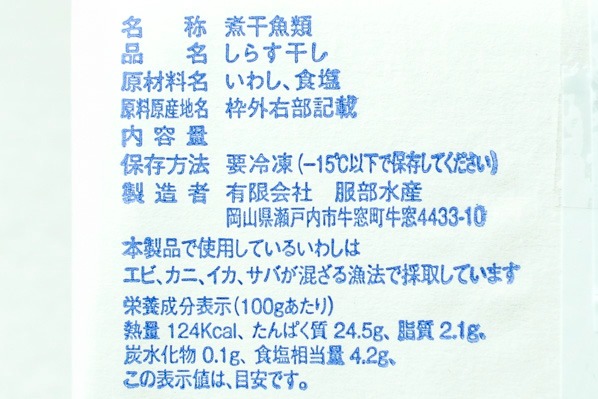 名称 煮干魚類
品名 しらす干し
原材料名 いわし、食塩
原料原産地名 枠外右部記載
内容量
保存方法 要冷凍(−15℃以下で保存してください)
製造者 有限会社 服部水産
岡山県瀬戸内市牛窓町牛窓4433-10
本製品で使用しているいわしは
エビ、カニ、イカ、サバが混ざる漁法で採取しています
栄養成分表示(100gあたり)
熱量 124Kcal、たんぱく質 24.5g、脂質 2.1g、
炭水化物 0.1g、食塩相当量 4.2g、
この表示値は、目安です。